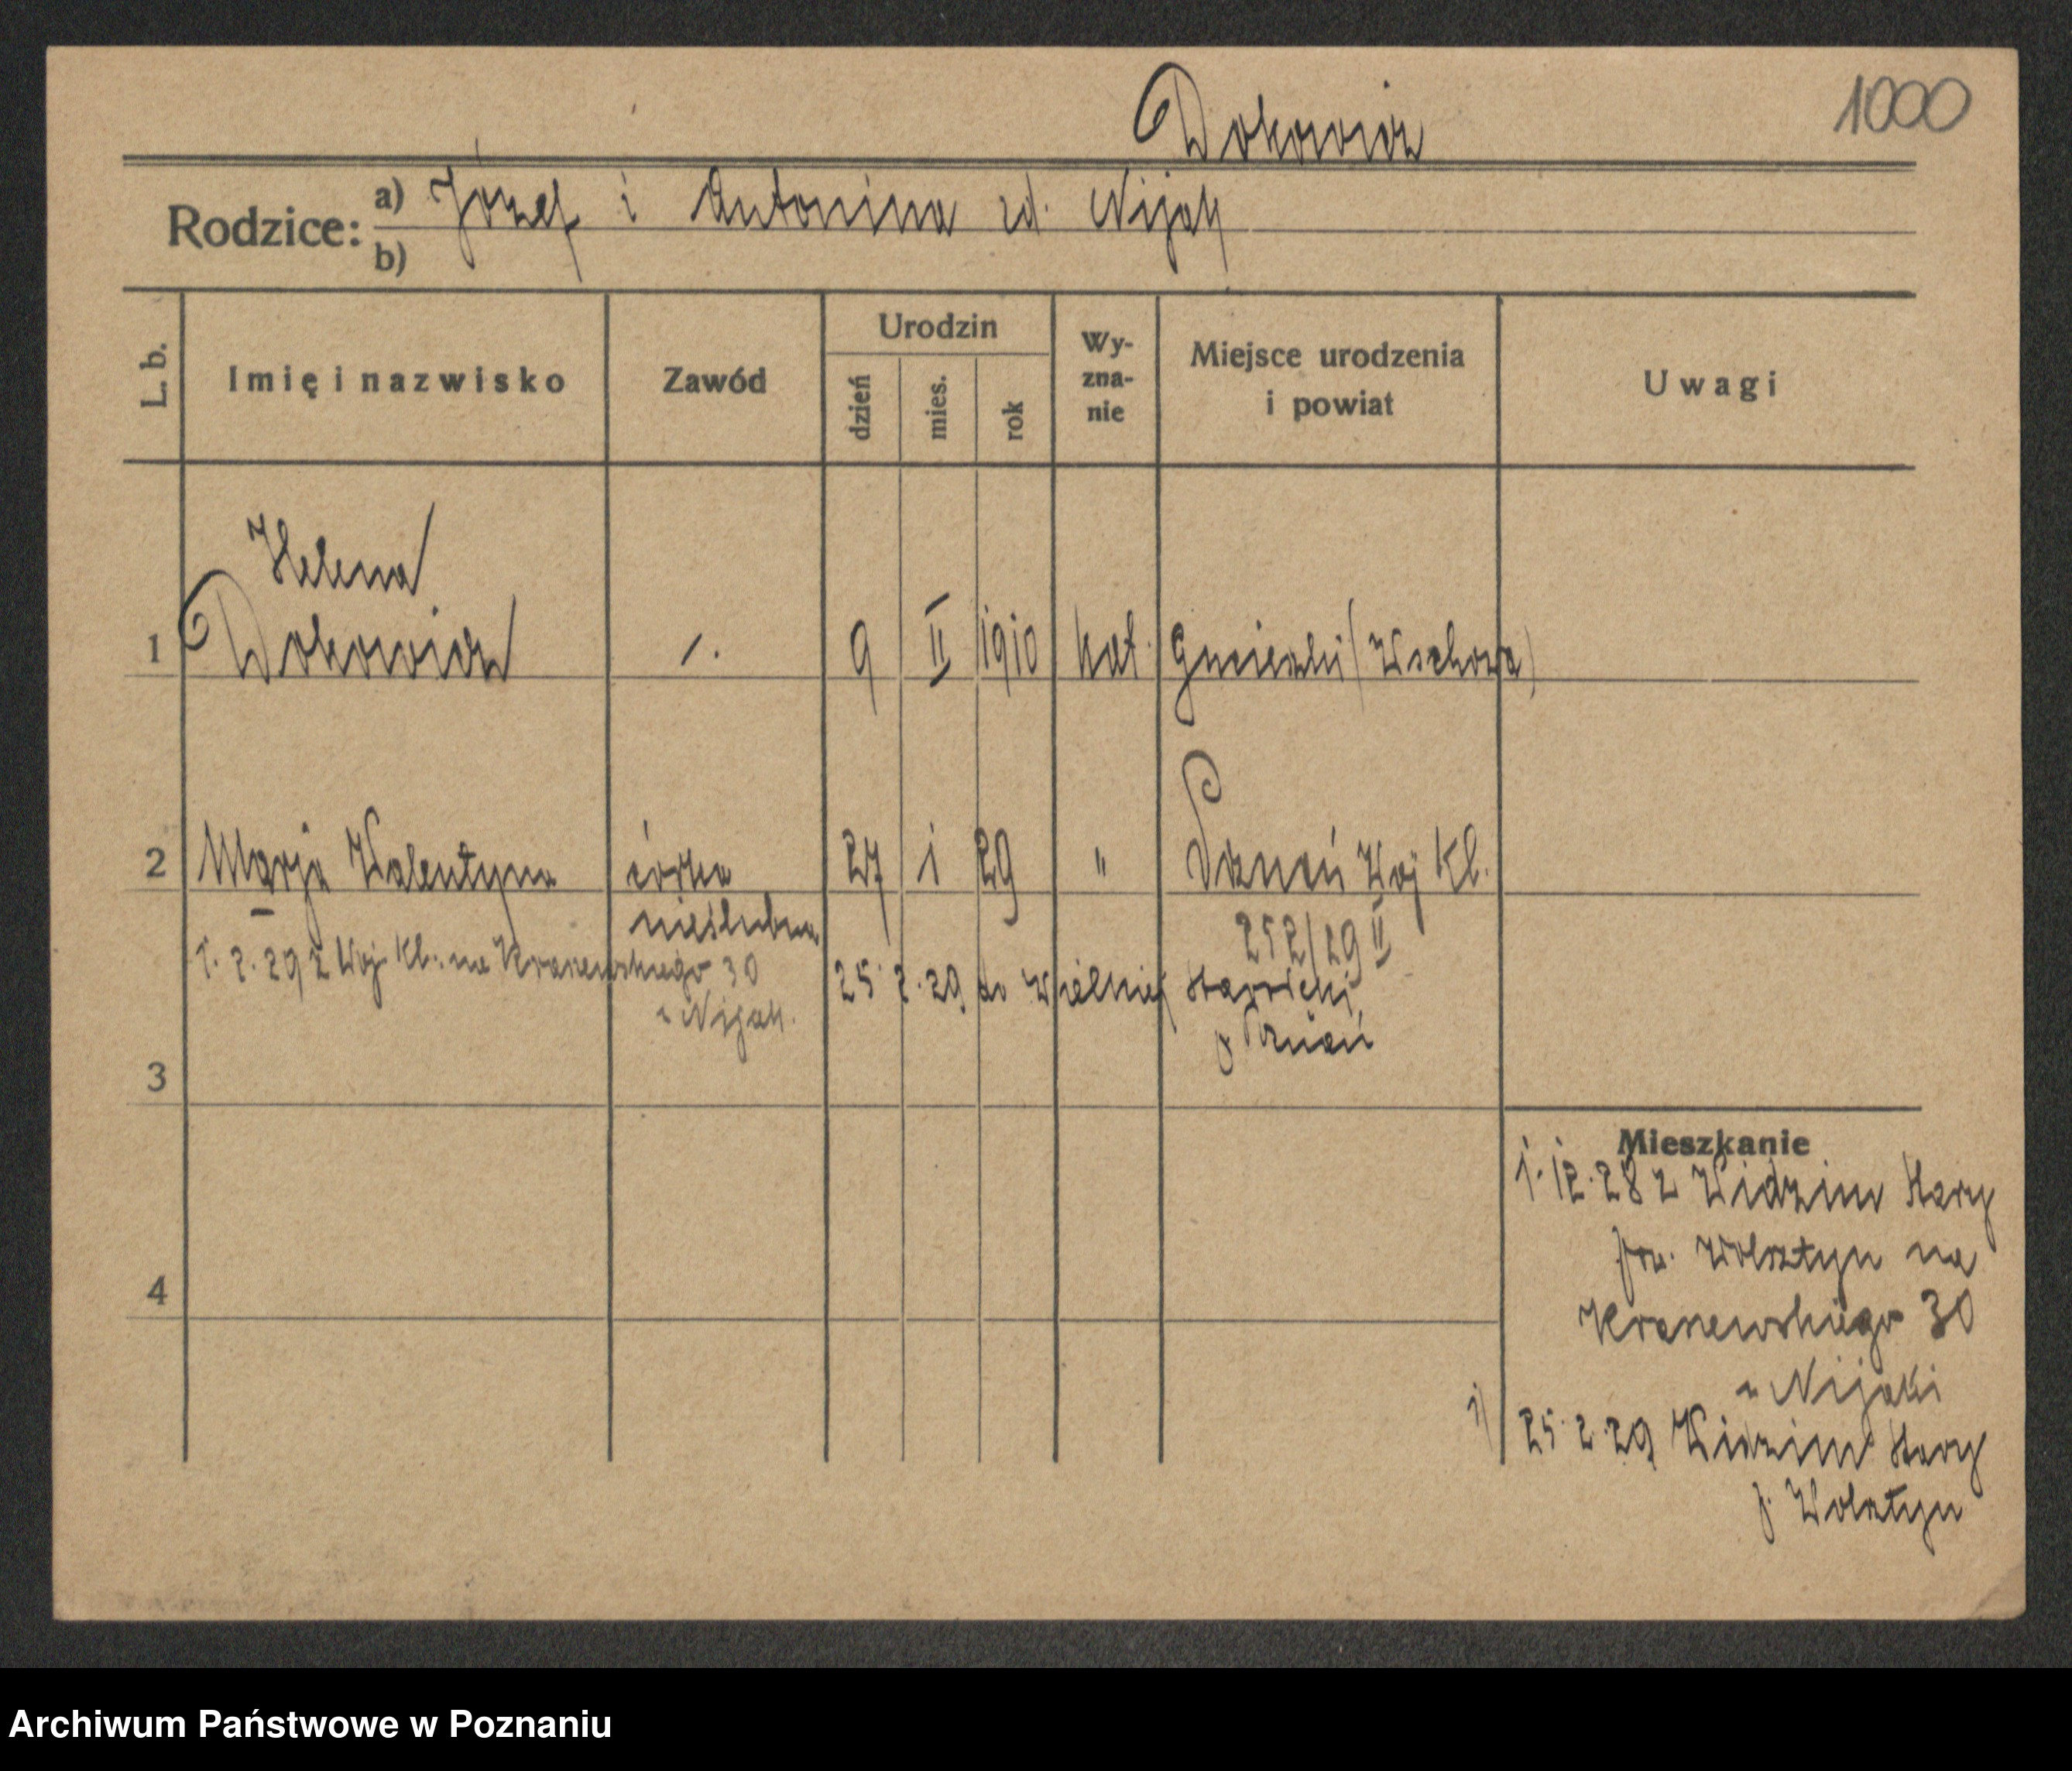 Dokowicz
1000
Rodzice: a) Józef i Antonina zd. Nijak
b)
L. b.
Imię i nazwisko
Zawód
Urodzin
dzień
mies.
rok
Wy-
zna-
nie
Miejsce urodzenia
i powiat
Uwagi
Helena
1 Dokowicz /. 9 II 1910 kat. (Wschowa)
2 Marja Walentyna córka 27 1 29 " Poznań Woj Kl.
nieślubna 252/29 II
1. 2. 29 z Woj. Kl. na Kraszewskiego 30 25. 2. 29 do
u Nijak. p Poznań
3
Mieszkanie
1. 12. 28 z Widzim Stary
pow. Wolsztyn na
4 Kraszewskiego 30
u Nijaki
1) 25. 2. 29 Widzim Stary
p. Wolsztyn
Archiwum Państwowe w Poznaniu